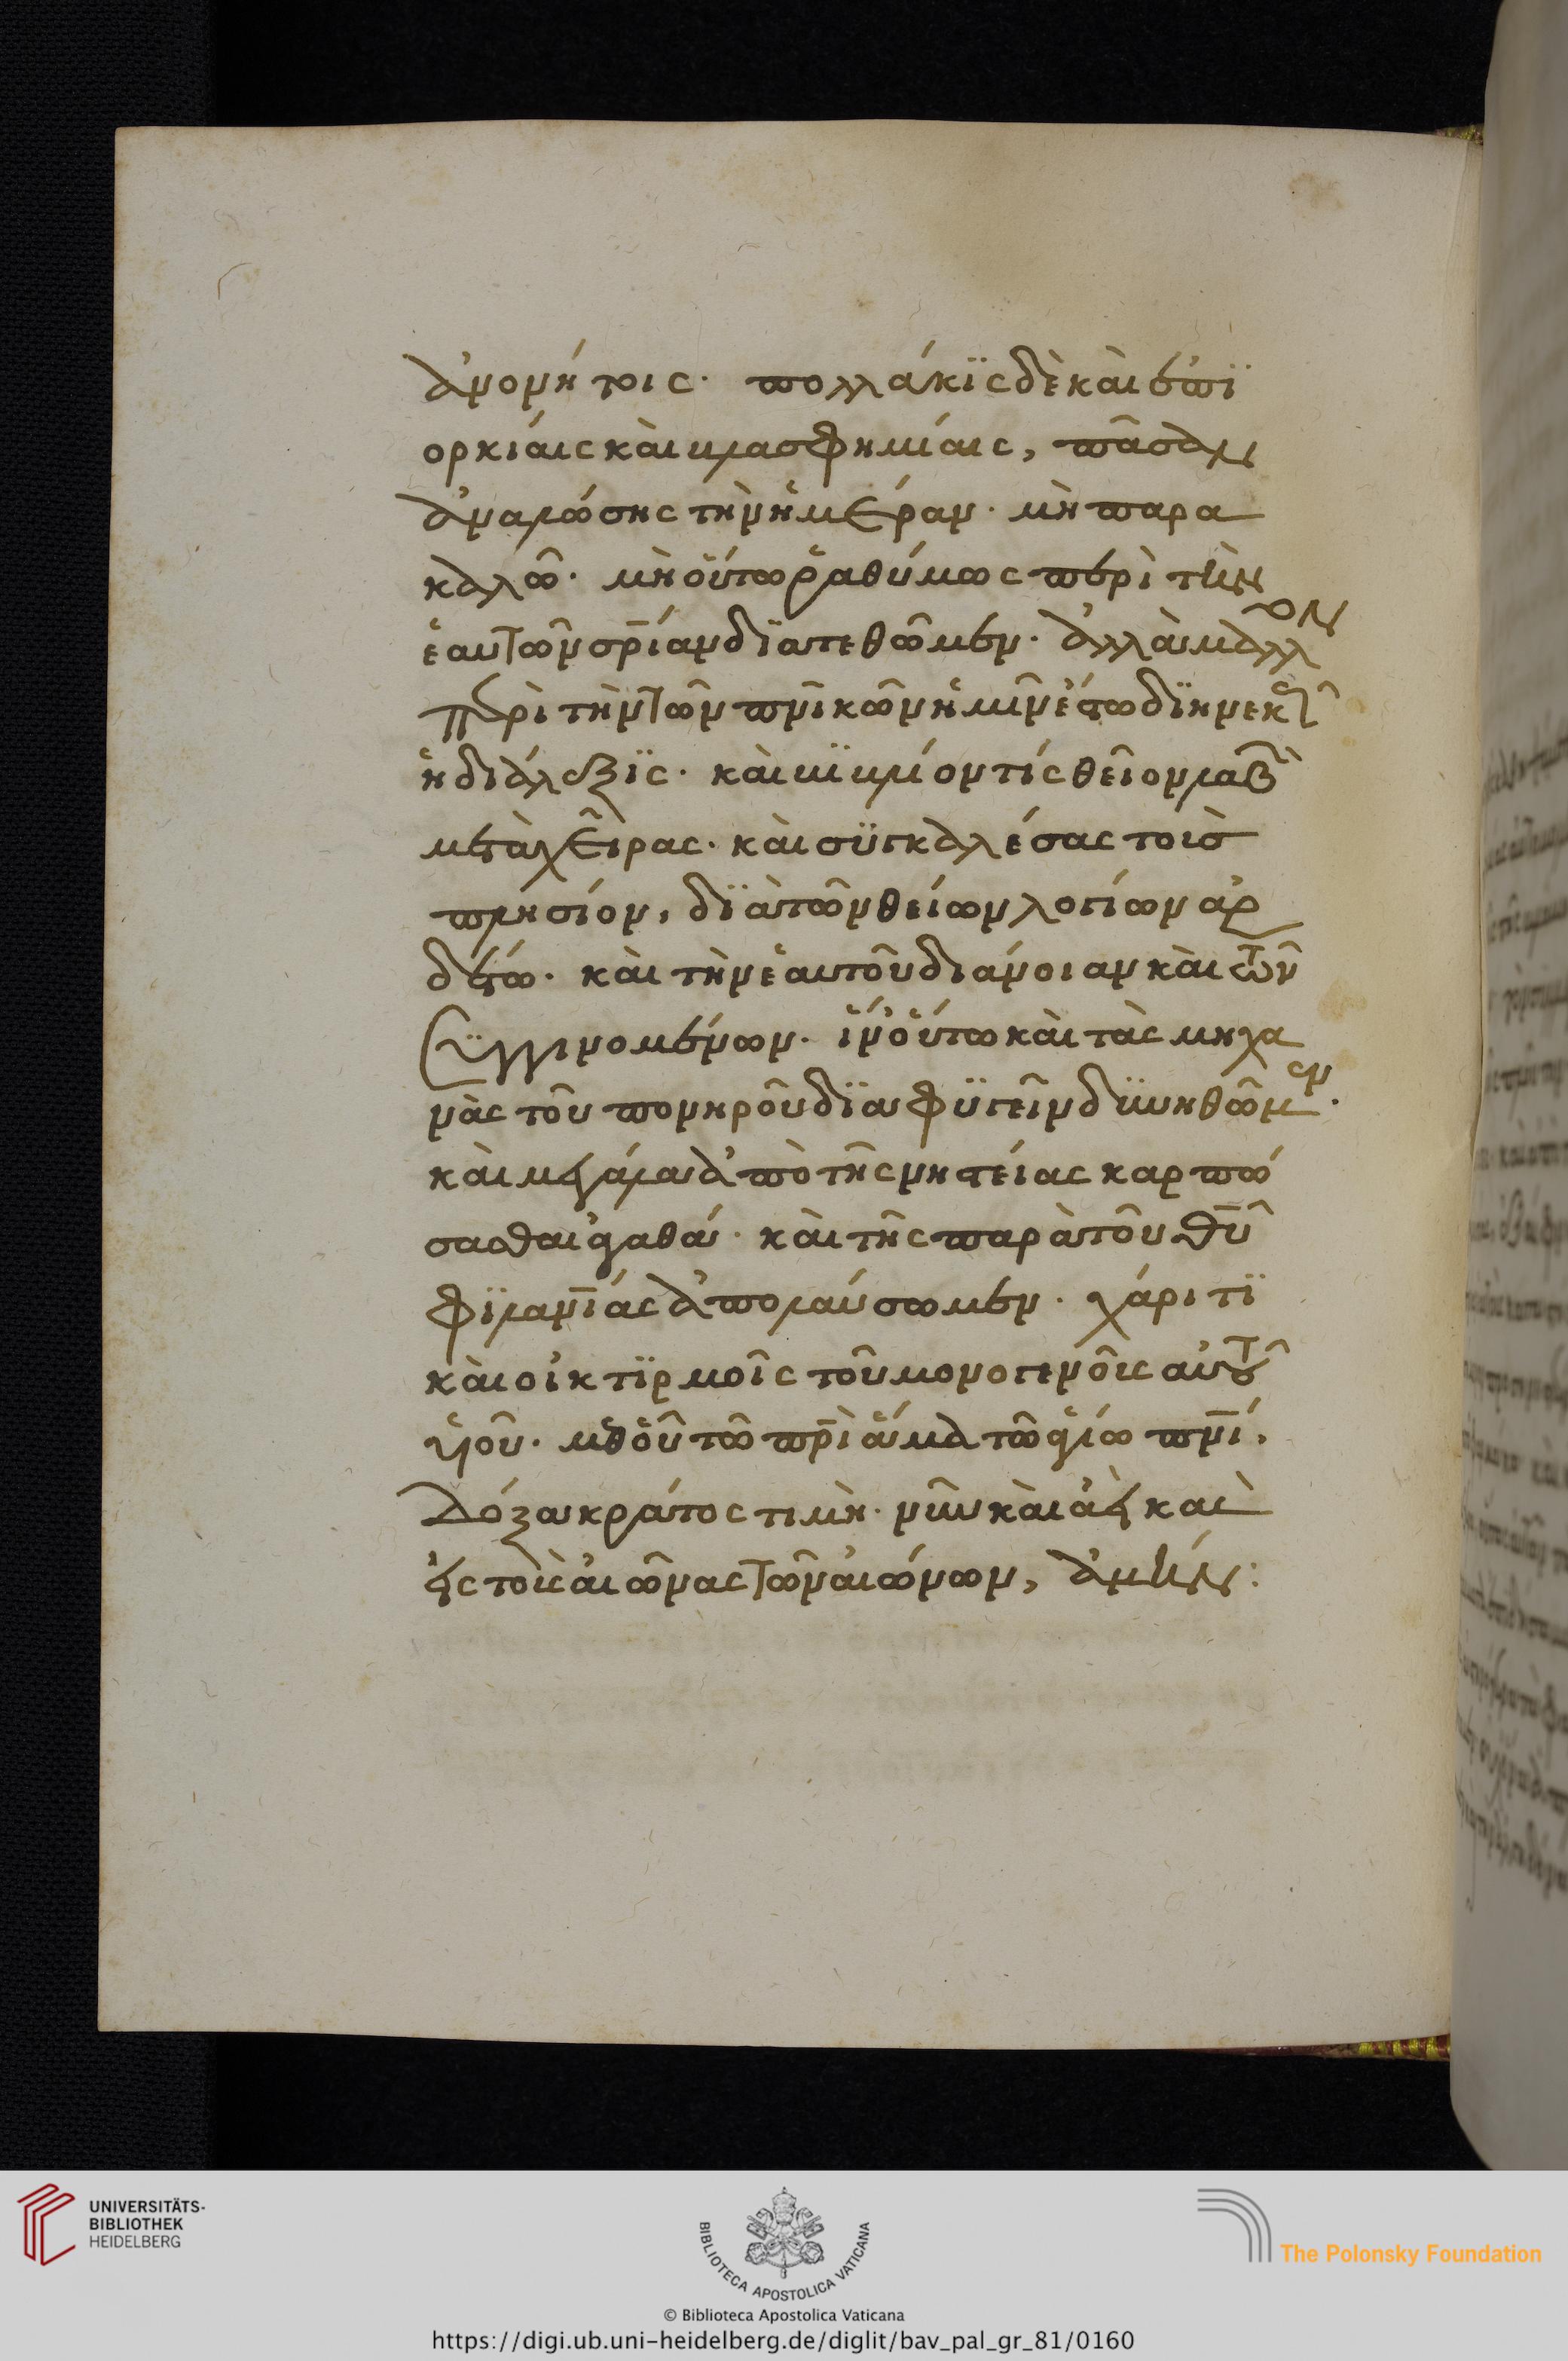 ἀνονήτοις· πολλάκϊς δὲ καὶ ἐπϊ
ορκίαις καὶ βλασφημίαις, πᾶσαν
ἀναλώσης τὴν ἡμέραν· μὴ παρα
καλῶ· μὴ οὕτω ῥαθύμως περὶ τὴν
ἑαυτῶν σρ̅ίαν διατεθῶμεν· ἀλλὰ μᾶλλον
περὶ τὴν τῶν πν̅ικῶν ἡμῖν ἔστω διηνεκὴς
ἡ διάλεξϊς· καὶ βϊβλίον τίς θεῖον λαβὼν
μετὰ χεῖρας· καὶ συγκαλέσας τοὺς
πλησίον, διὰ τῶν θείων λογίων ἀρ
δέτω· καὶ τὴν ἑαυτοῦ διάνοιαν καὶ τῶν
συγγινομένων· ἵν' οὕτω καὶ τὰς μηχα
νὰς τοῦ πονηροῦ διαφυγεῖν δυνηθῶμεν·
καὶ μεγάλα ἀπὸ τῆς νηστείας καρπώ
σασθαι ἀγαθά· καὶ τῆς παρὰ τοῦ θ̅υ
φϊλαν̅ίας ἀπολαύσωμεν· χάριτϊ
καὶ οἰκτϊρμοῖς τοῦ μονογενοῦς αὐτοῦ
υἱοῦ· μεθ' οὗ τῶ πρ̅ὶ ἅμα τῶ ἁγίω πν̅ί,
δόξα κράτος τιμὴ· νῦν καὶ ἀεὶ καὶ
εἰς τοὺς αἰῶνας τῶν αἰώνων, ἀμήν:
UNIVERSITÄTS-
BIBLIOTHEK
HEIDELBERG
BIBLIOTECA APOSTOLICA VATICANA
The Polonsky Foundation
© Biblioteca Apostolica Vaticana
https://digi.ub.uni-heidelberg.de/diglit/bav_pal_gr_81/0160